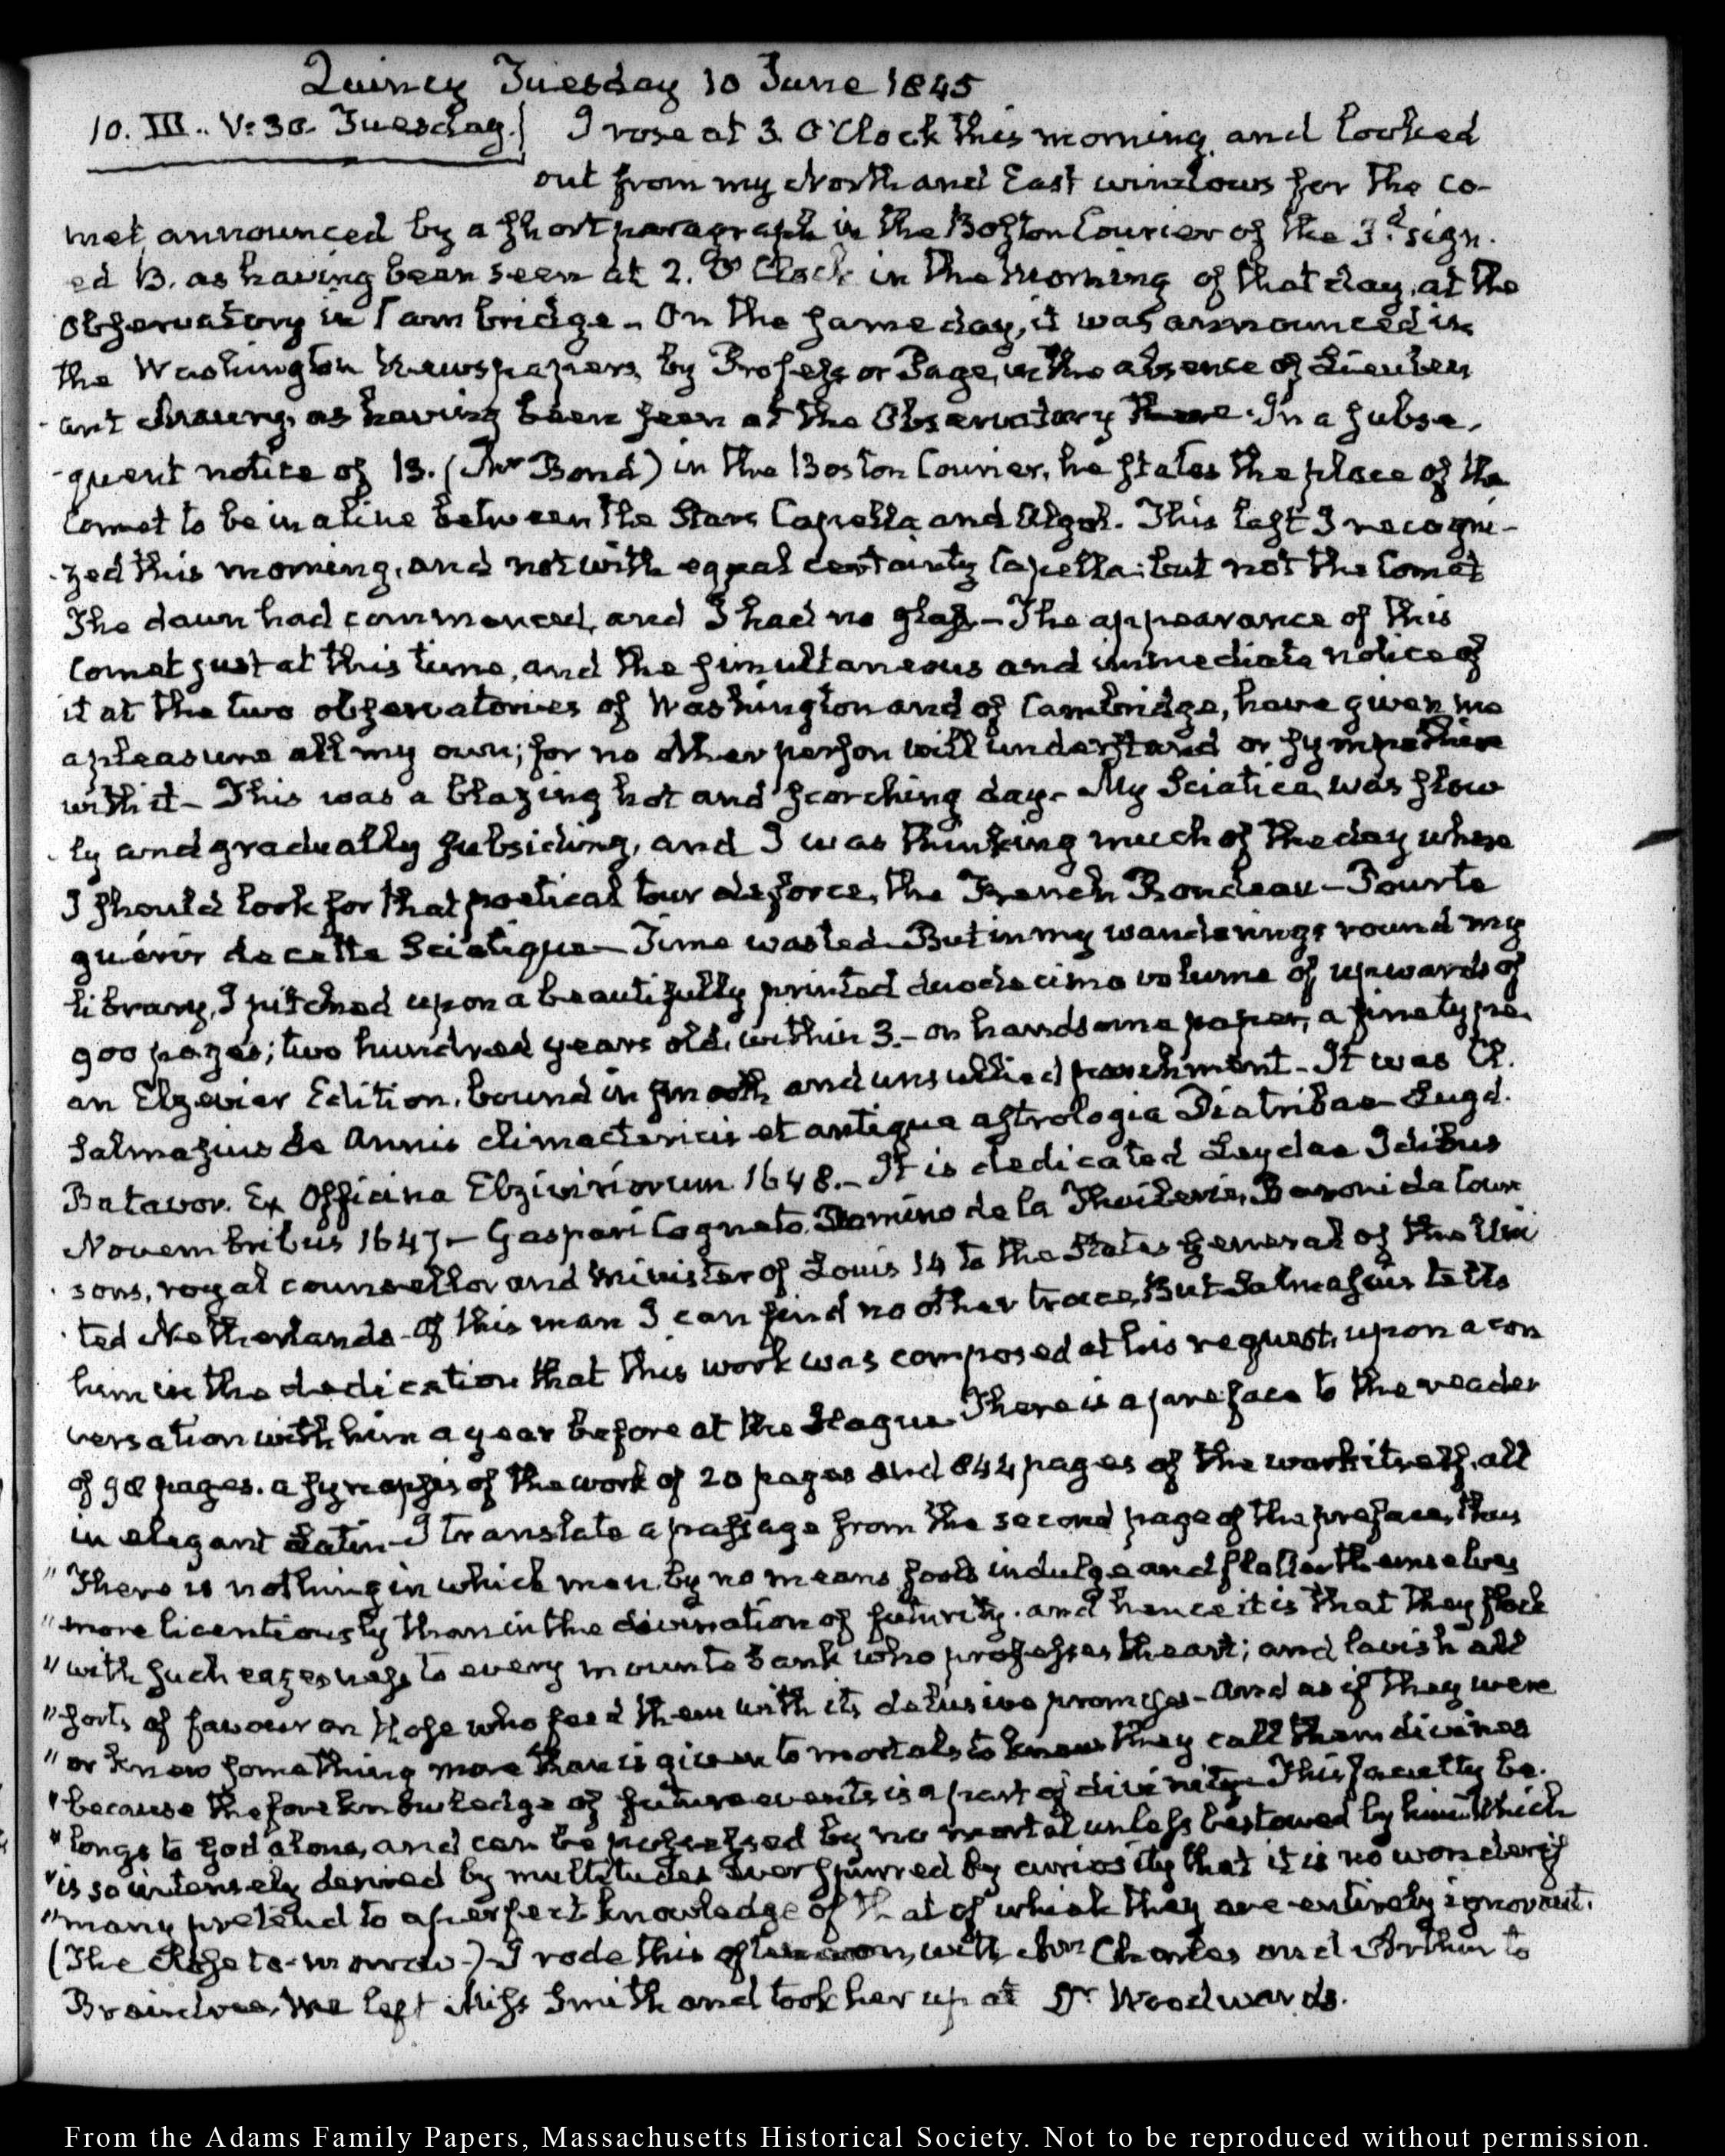 Quincy Tuesday 10 June 1845
10. III.. V:30. Tuesday.} I rose at 3. O'Clock this morning, and looked
out from my North and East windows for the co-
met, announced by a short paragraph in the Boston Courier of the 3.d sign.
ed B. as having been seen at 2. O'Clock in the morning of that day, at the
Observatory in Cambridge – On the same day, it was announced in
the Washington Newspapers, by Professor Page, in the absence of Lieuten
-ant Maury, as having been seen at the Observatory there. In a subse,
-quent notice of B. (Mr Bond) in the Boston Courier, he states the place of the
Comet to be in a line between the Stars Capella and Algol. This last I recogni-
-zed this morning, and not with equal certainty Capella: but not the Comet
The dawn had commenced, and I had no glass – The appearance of this
Comet just at this time, and the simultaneous and immediate notice of
it at the two observatories of Washington and of Cambridge, have given me
a pleasure all my own; for no other person will understand or sympathise
with it – This was a blazing hot and scorching day – My Sciatica, was slow
-ly and gradually subsiding, and I was thinking much of the day where
I should look for that poetical tour de force, the French Rondeau – Pour te
guérir de cette Sciatique – Time wasted – But in my wanderings round my
library, I pitched upon a beautifully printed duodecimo volume of upwards of
900 pages; two hundred years old, within 3. – on handsome paper, a fine type.
an Elzevier Edition, bound in smooth and unsullied parchment – It was Cl.
Salmasius de Annis climactericis et antiqua astrologia Diatribae – Lugd.
Batavor. Ex Officina Elziviriorum 1648. – It is dedicated Leydae Idibus
Novembribus 1647 – Gaspari Cogneto, Domino de la Thuilerie, Baroni de Cour
-sons, royal counsellor and Minister of Louis 14 to the States General of the Uni
-ted Netherlands – Of this man I can find no other trace, But Salmasius tells
him in the dedication that this work was composed at his request, upon a con
versation with him a year before at the Hague. There is a preface to the reader
of 98 pages. a synopsis of the work of 20 pages and 844 pages of the work itself, all
in elegant Latin – I translate a passage from the second page of the preface, thus
"There is nothing in which men, by no means fools indulge and flatter themselves
"more licentiously than in the divination of futurity. and hence it is that they flock
"with such eagerness to every mountebank who professes the art; and lavish all
"sorts of favour on those who feed them with its delusive promises – and as if they were
"or knew something more than is given to mortals to know they call them divines
"because the foreknowledge of future events, is a part of divinity – This faculty be.
"longs to God alone, and can be possessed by no mortal unless bestowed by him. Which
"is so intensely desired by multitudes over spurred by curiosity that it is no wonder if
"many pretend to a perfect knowledge of that of which they are entirely ignorant.
(The to-morrow –) I rode this afternoon, with Mrs Charles and Arthur to
Braintree, We left Miss Smith and took her up at Dr Woodwards.
From the Adams Family Papers, Massachusetts Historical Society. Not to be reproduced without permission.